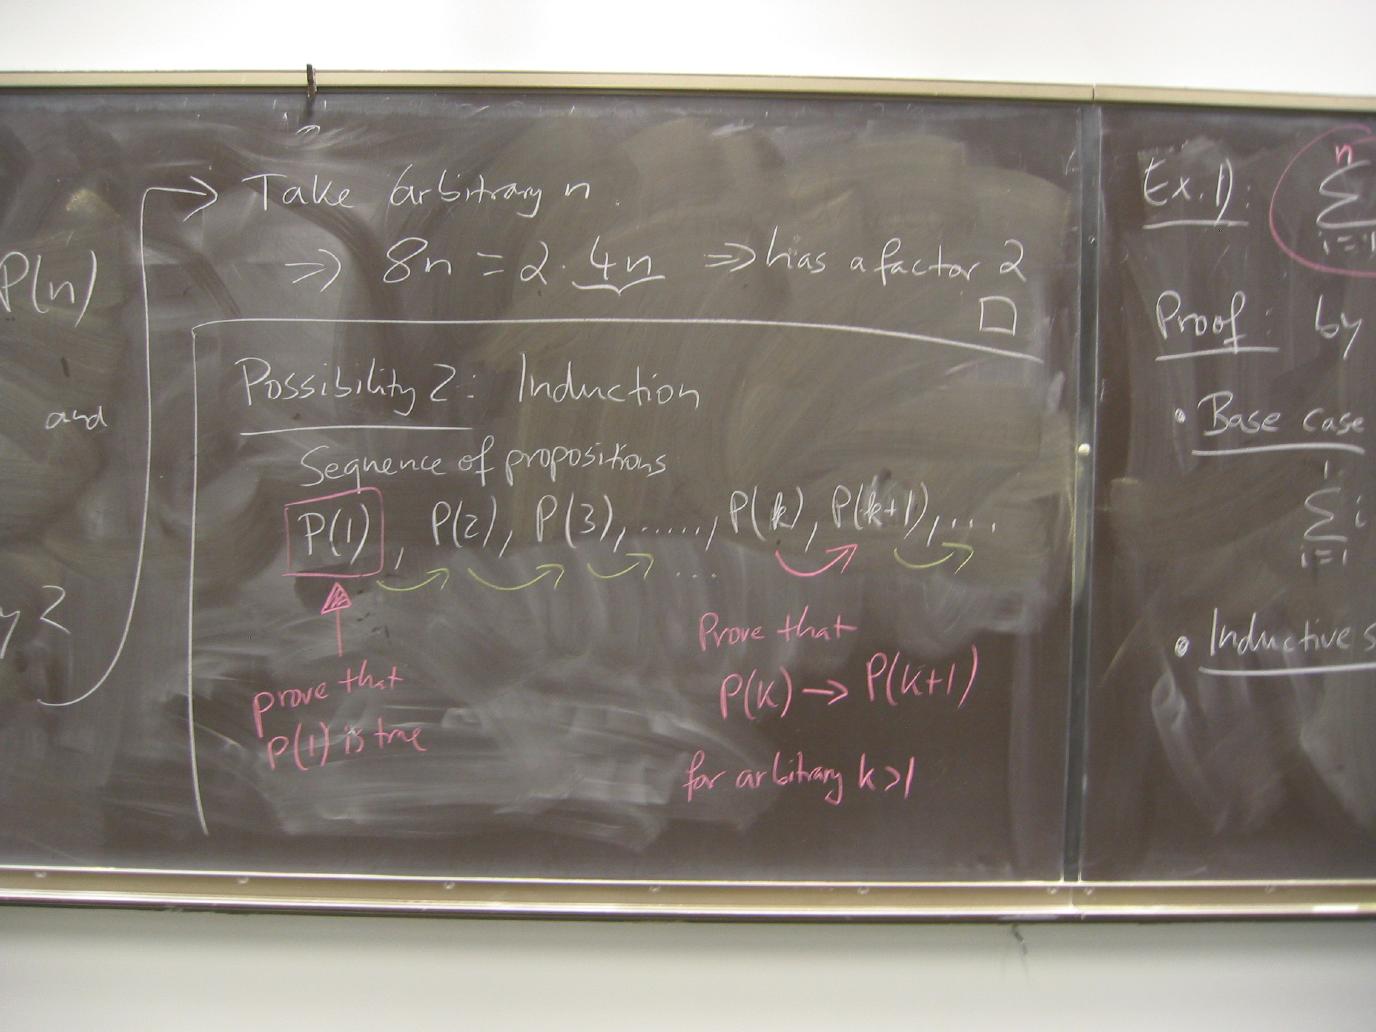 P(n)
and
y 2
→ Take arbitrary n.
⇒ 8n = 2 · 4n ⇒ has a factor 2
□
Possibility 2: Induction
Sequence of propositions
P(1), P(2), P(3), ......, P(k), P(k+1), ....
...
prove that
P(1) is true
Prove that
P(k) → P(k+1)
for arbitrary k>1
Ex.1): n
∑
i=1
Proof: by
• Base case
1
∑ i
i=1
• Inductive s